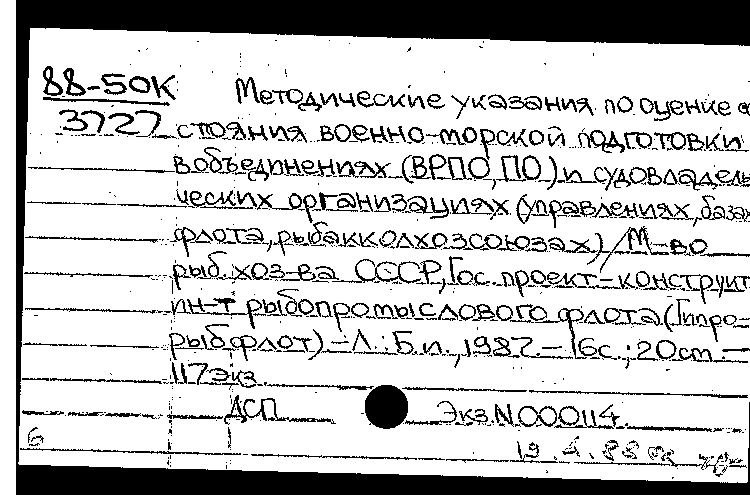 88-50К
3727
Методические указания по оценке со
стояния военно-морской подготовки
в объединениях (ВРПО, ПО) и судовладель
ческих организациях (управлениях, базах
флота, рыбакколхозсоюзах) / М-во
рыб. хоз-ва СССР, Гос. проект-конструкт
ин-т рыбопромыслового флота (Гипро-
рыбфлот) – Л.: Б.и., 1987. – 16с.; 20см –
117 экз.
ДСП Экз. N 000114.
6 19.4.88